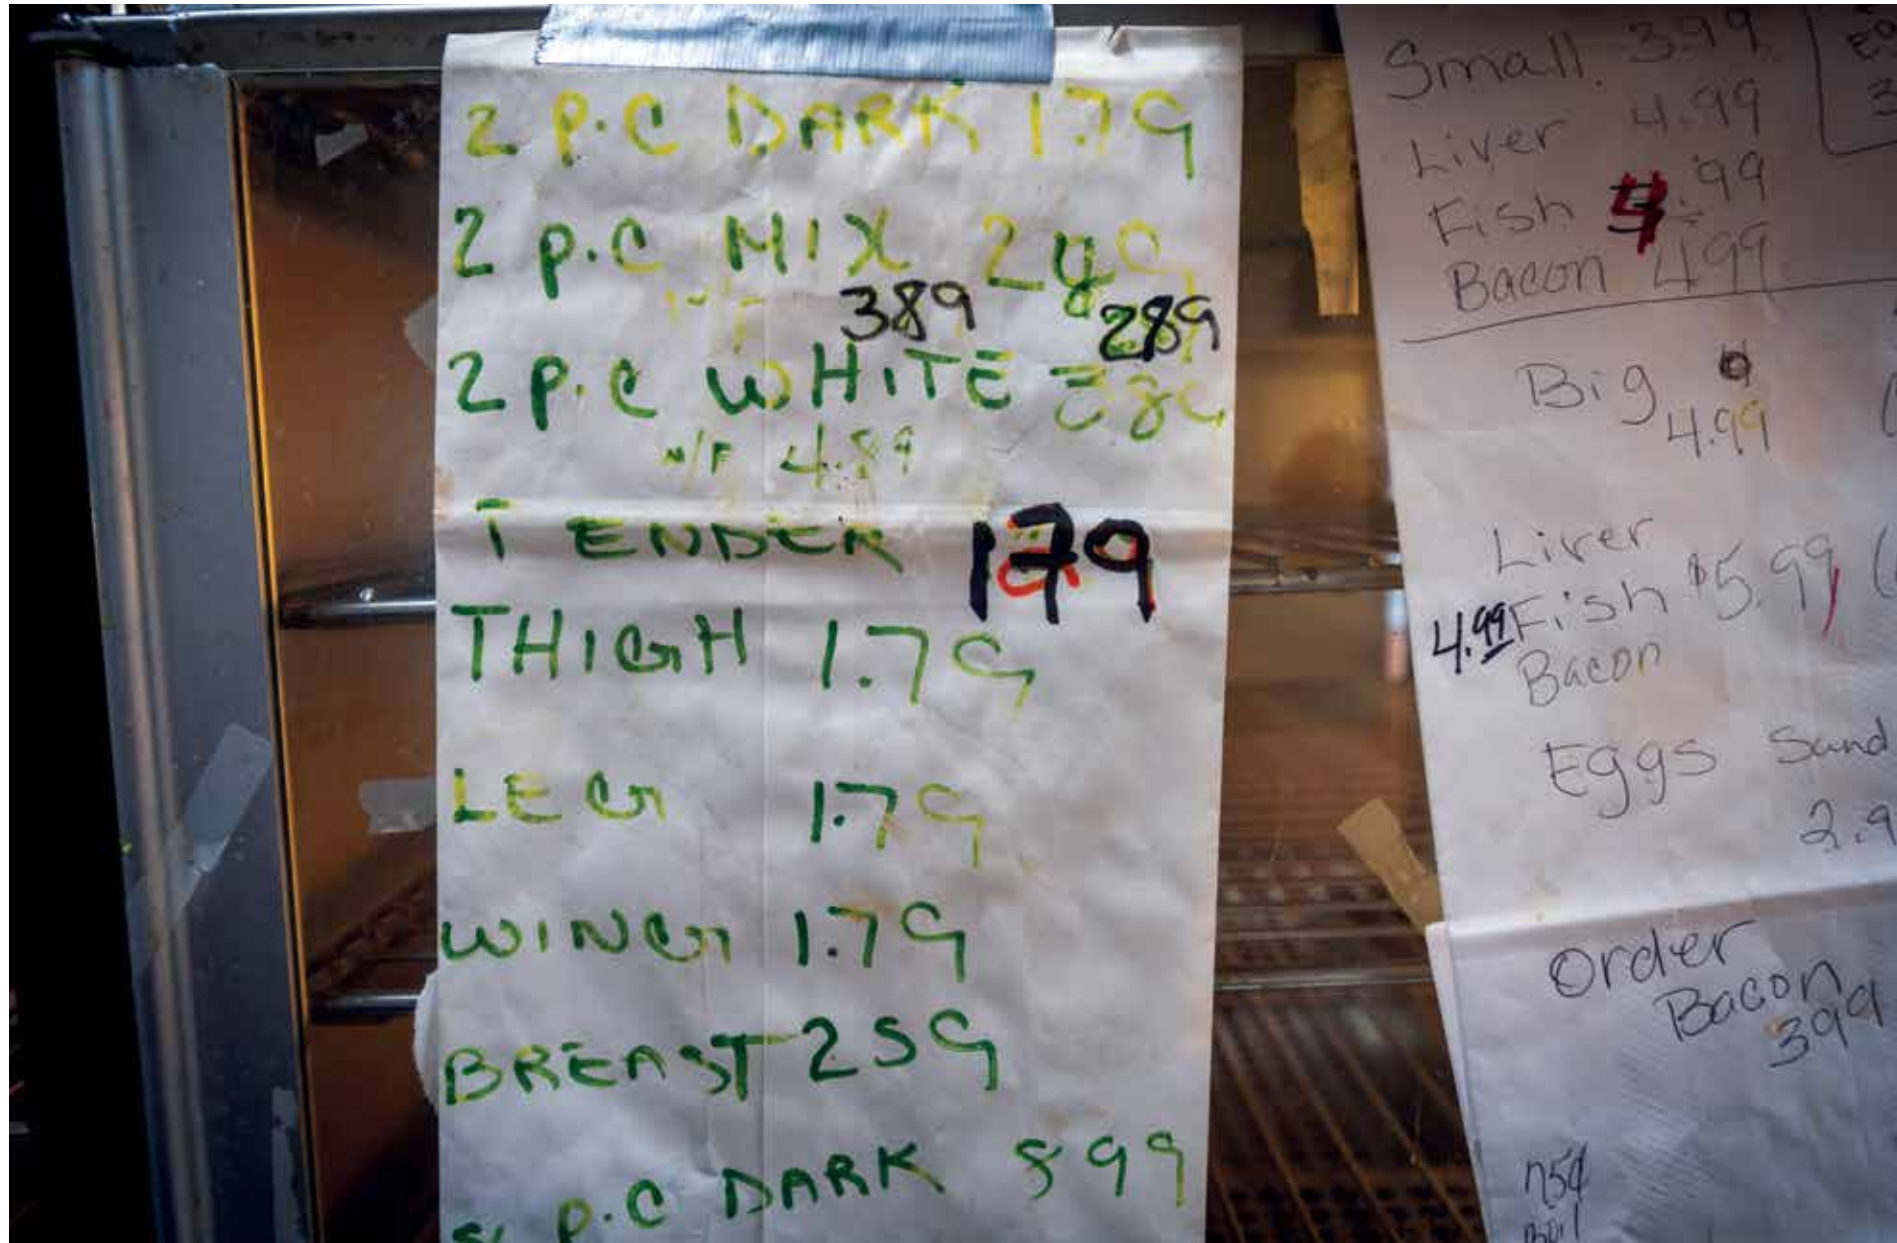 2 P.C DARK 1.79
2 P.C MIX 289
389 289
2 P.C WHITE
W/F 4.89
TENDER 179
THIGH 1.79
LEG 1.79
WING 1.79
BREAST 259
P.C DARK 899
Small 3.99
Liver 4.99
Fish 4.99
Bacon 499
Big
4.99
Liver
4.99 Fish $5.99
Bacon
Eggs Sand
2.9
Order
Bacon
399